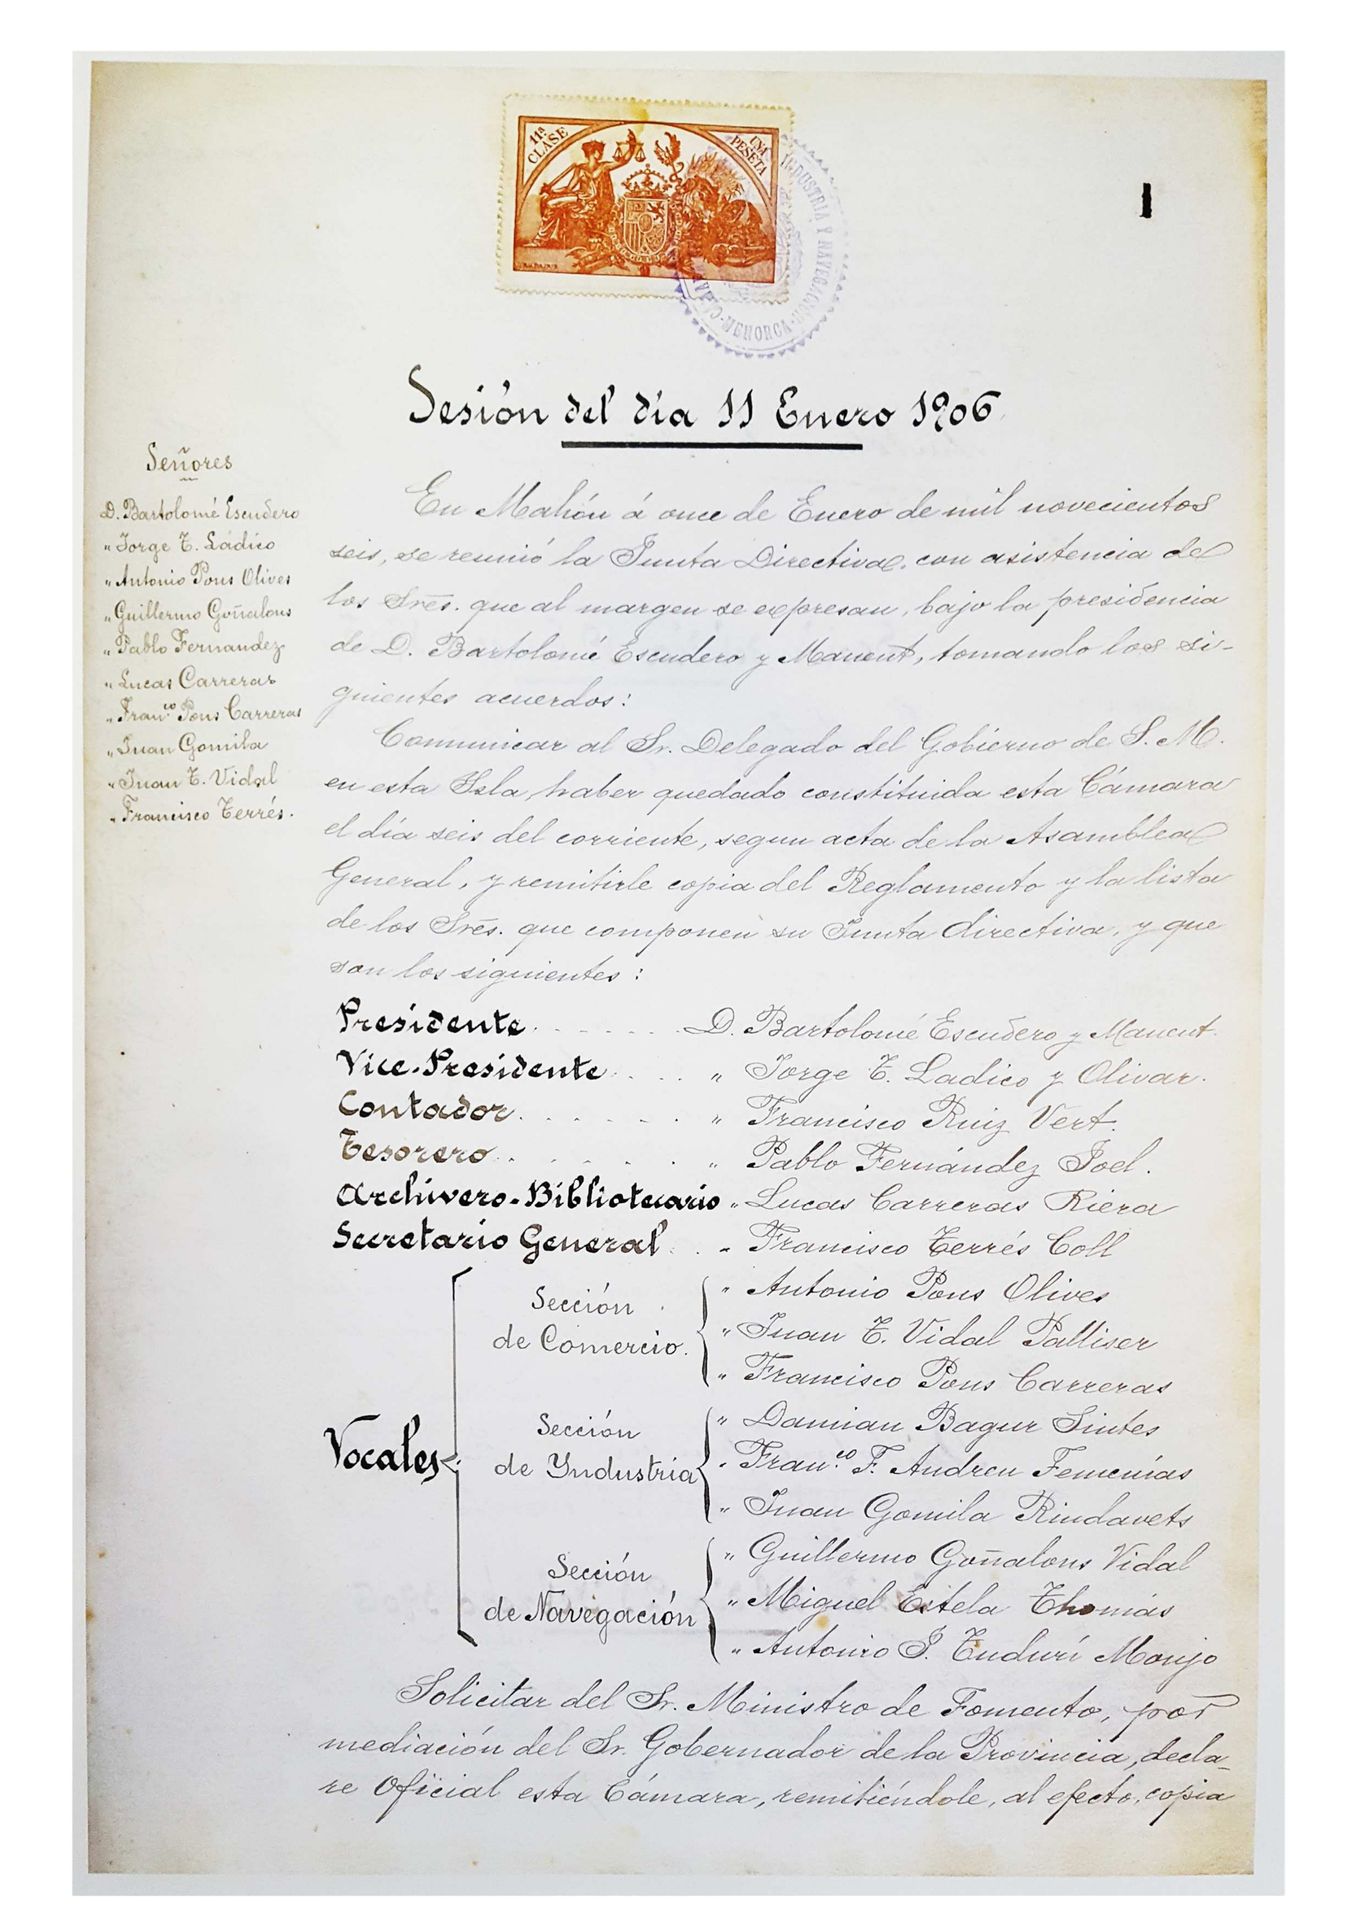 11ª CLASE
UNA PESETA
INDUSTRIA Y NAVEGACIÓN · MENORCA
1
Sesión del día 11 Enero 1906
Señores
D. Bartolomé Escudero
" Jorge T. Ládico
" Antonio Pons Olives
" Guillermo Goñalons
" Pablo Fernandez
" Lucas Carreras
" Fran.co Pons Carreras
" Juan Gomila
" Juan T. Vidal
" Francisco Terrés.
En Mahón á once de Enero de mil novecientos
seis, se reunió la Junta Directiva, con asistencia de
los Sres. que al margen se expresan, bajo la presidencia
de D. Bartolomé Escudero y Manent, tomando los si-
guientes acuerdos:
Comunicar al Sr. Delegado del Gobierno de S. M.
en esta Isla, haber quedado constituida esta Cámara
el día seis del corriente, segun acta de la Asamblea
General, y remitirle copia del Reglamento y la lista
de los Sres. que componen su Junta directiva, y que
son los siguientes:
Presidente . . . . . . D. Bartolomé Escudero y Manent.
Vice-Presidente . . . . " Jorge T. Ladico y Olivar.
Contador . . . . . . " Francisco Ruiz Vert.
Tesorero . . . . . . " Pablo Fernández Joel.
Archivero-Bibliotecario " Lucas Carreras Riera
Secretario General . . " Francisco Terrés Coll
Vocales
Sección
de Comercio.
" Antonio Pons Olives
" Juan T. Vidal Palliser
" Francisco Pons Carreras
Sección
de Industria
" Damian Bagur Sintes
" Fran.co F. Andreu Femenías
" Juan Gomila Rindavets
Sección
de Navegación
" Guillermo Goñalons Vidal
" Miguel Estela Thomás
" Antonio J. Tudurí Monjo
Solicitar del Sr. Ministro de Fomento, por
mediación del Sr. Gobernador de la Provincia, decla-
re Oficial esta Cámara, remitiéndole, al efecto, copia